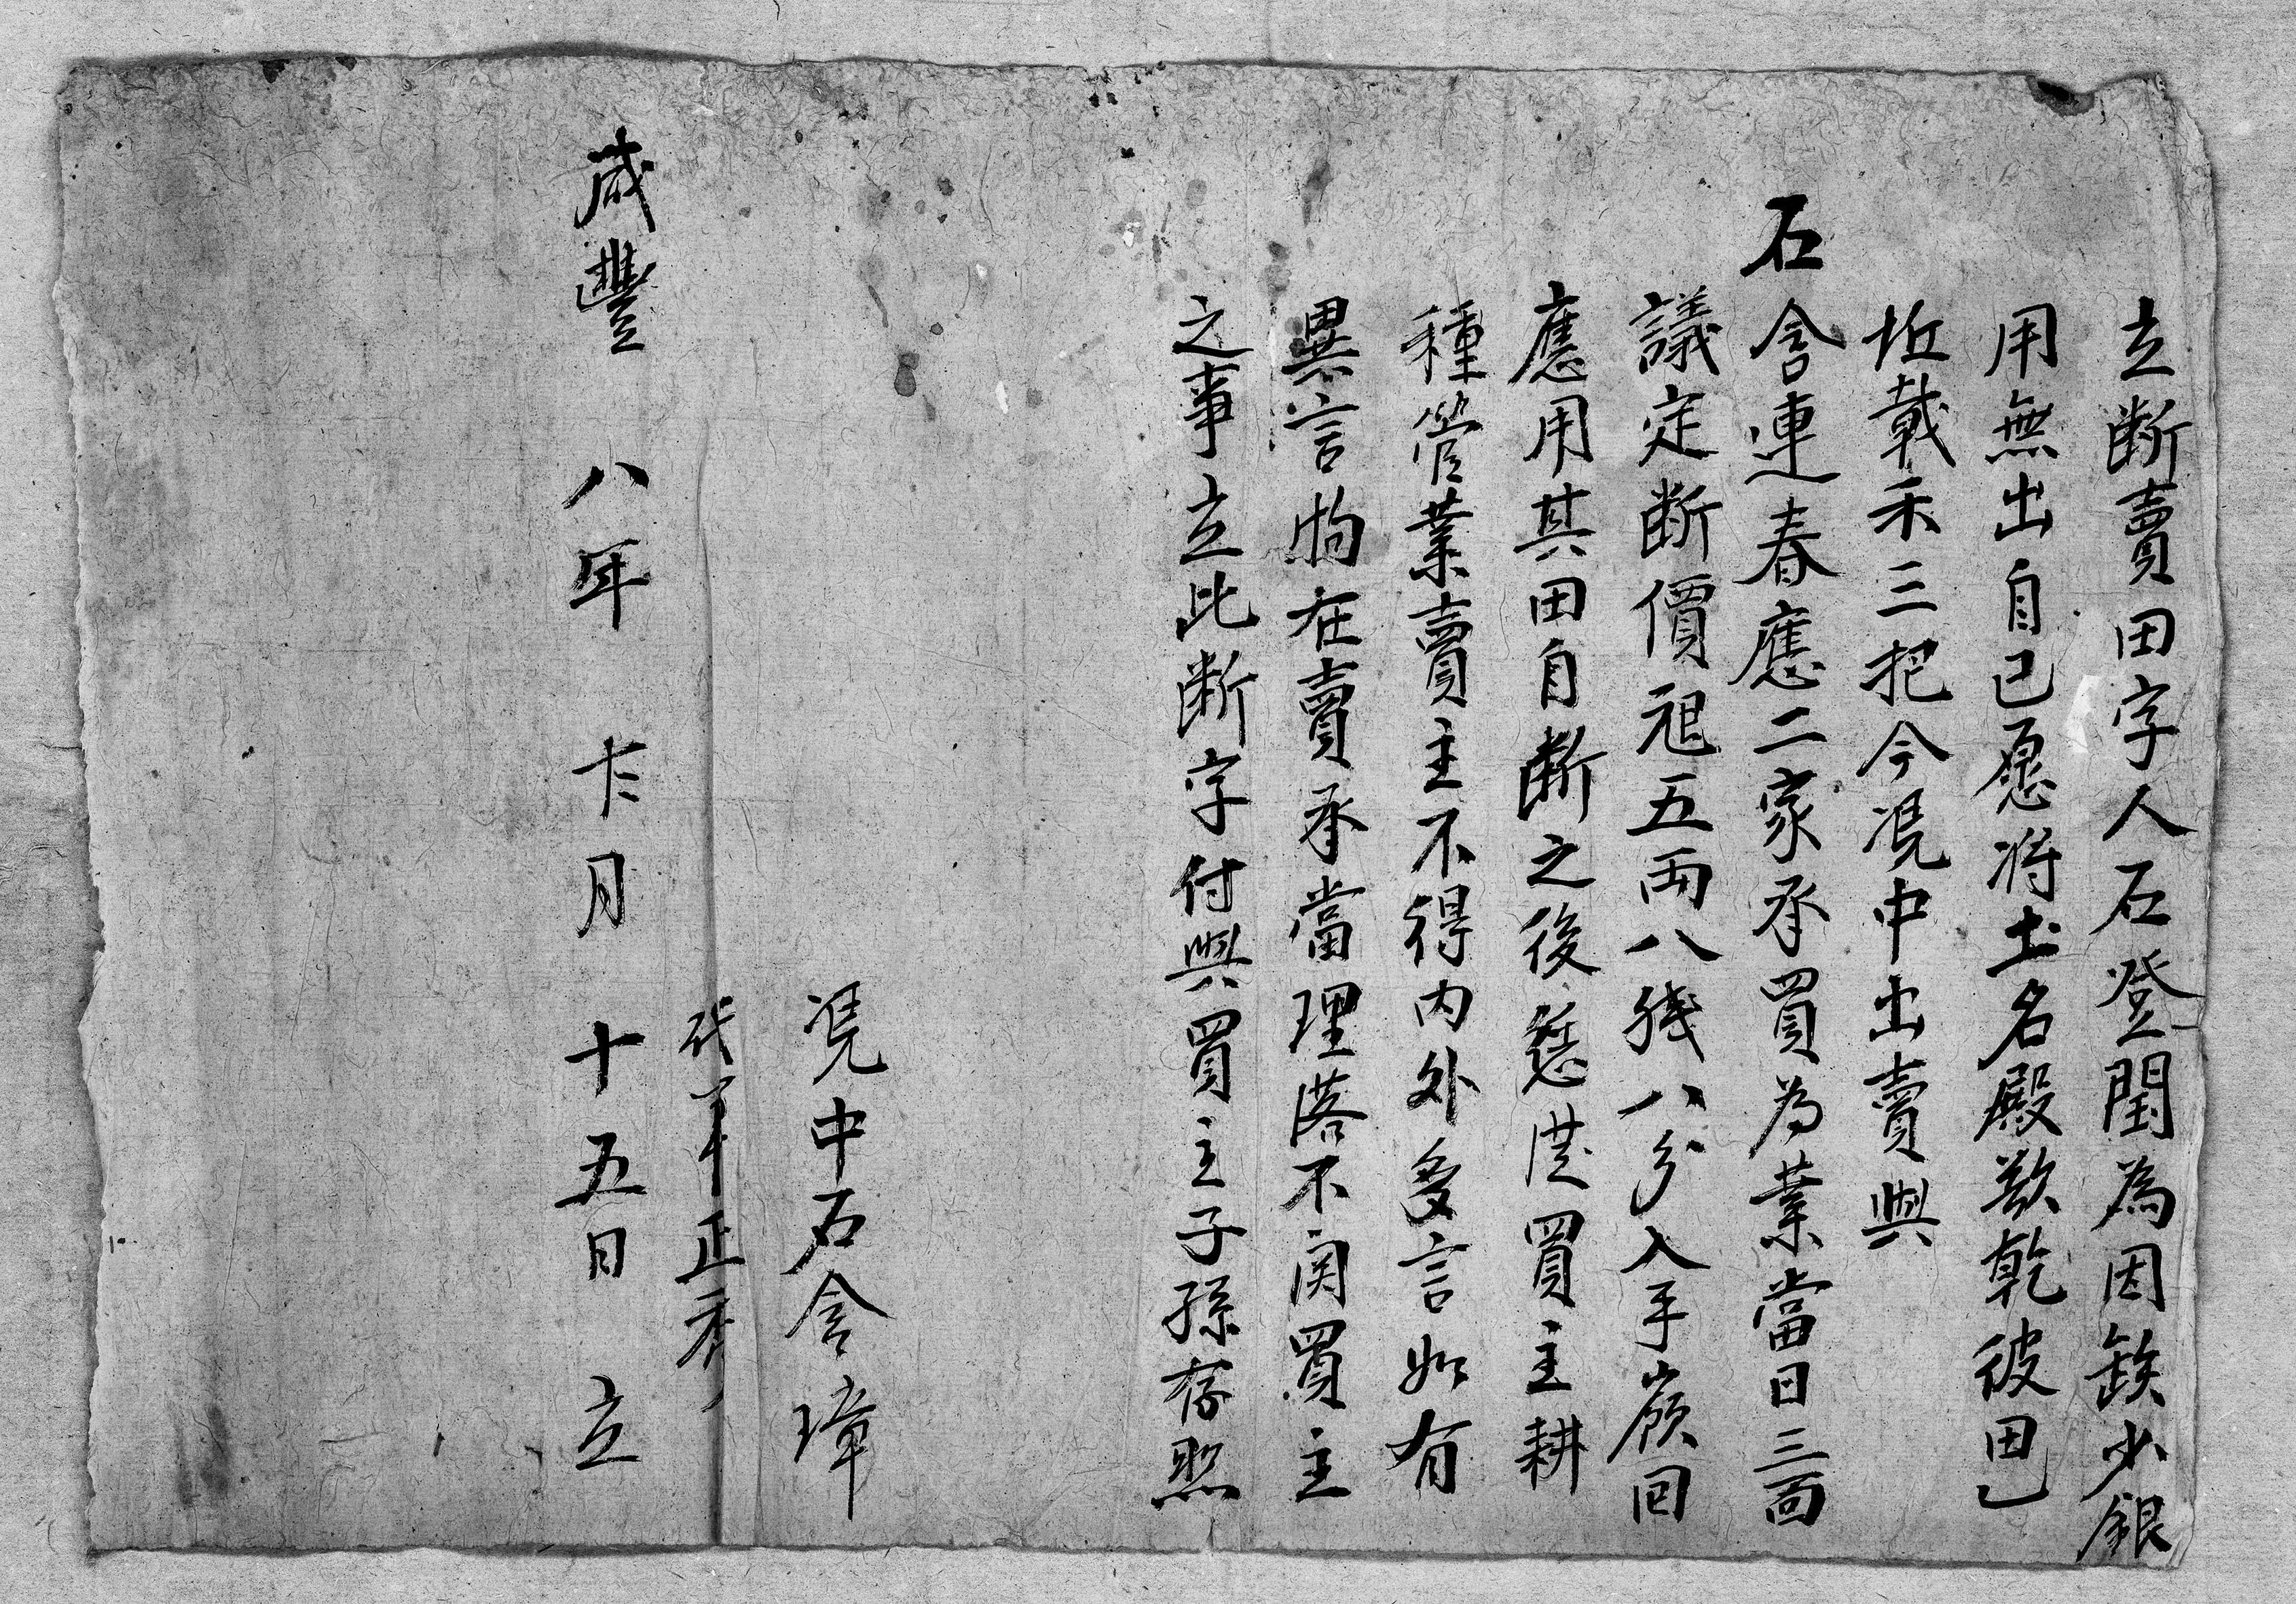 立断賣田字人石登閏為因缺少銀
用無出自己愿将土名殿欺乾彼田乚
坵載禾三把今凴中出賣與
石含連春應二家承買為業當日三面
議定断價五両八錢八分入手領回
應用其田自断之後慿買主耕
種管業賣主不得内外多言如有
異言的在賣承當理落不関買主
之事立此断字付與買主子孫存照
凴中石含璋
代筆正秀
咸豐八年十五日立